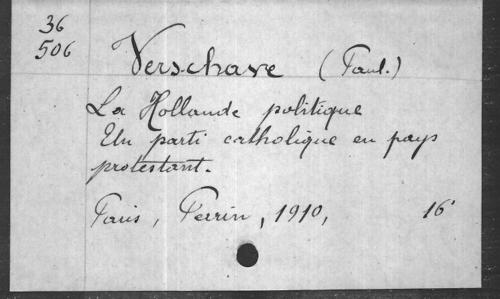 36
506
Verschave (Paul.)
La Hollande politique
Un parti catholique en pays
protestant.
Paris, Perrin, 1910, 16°